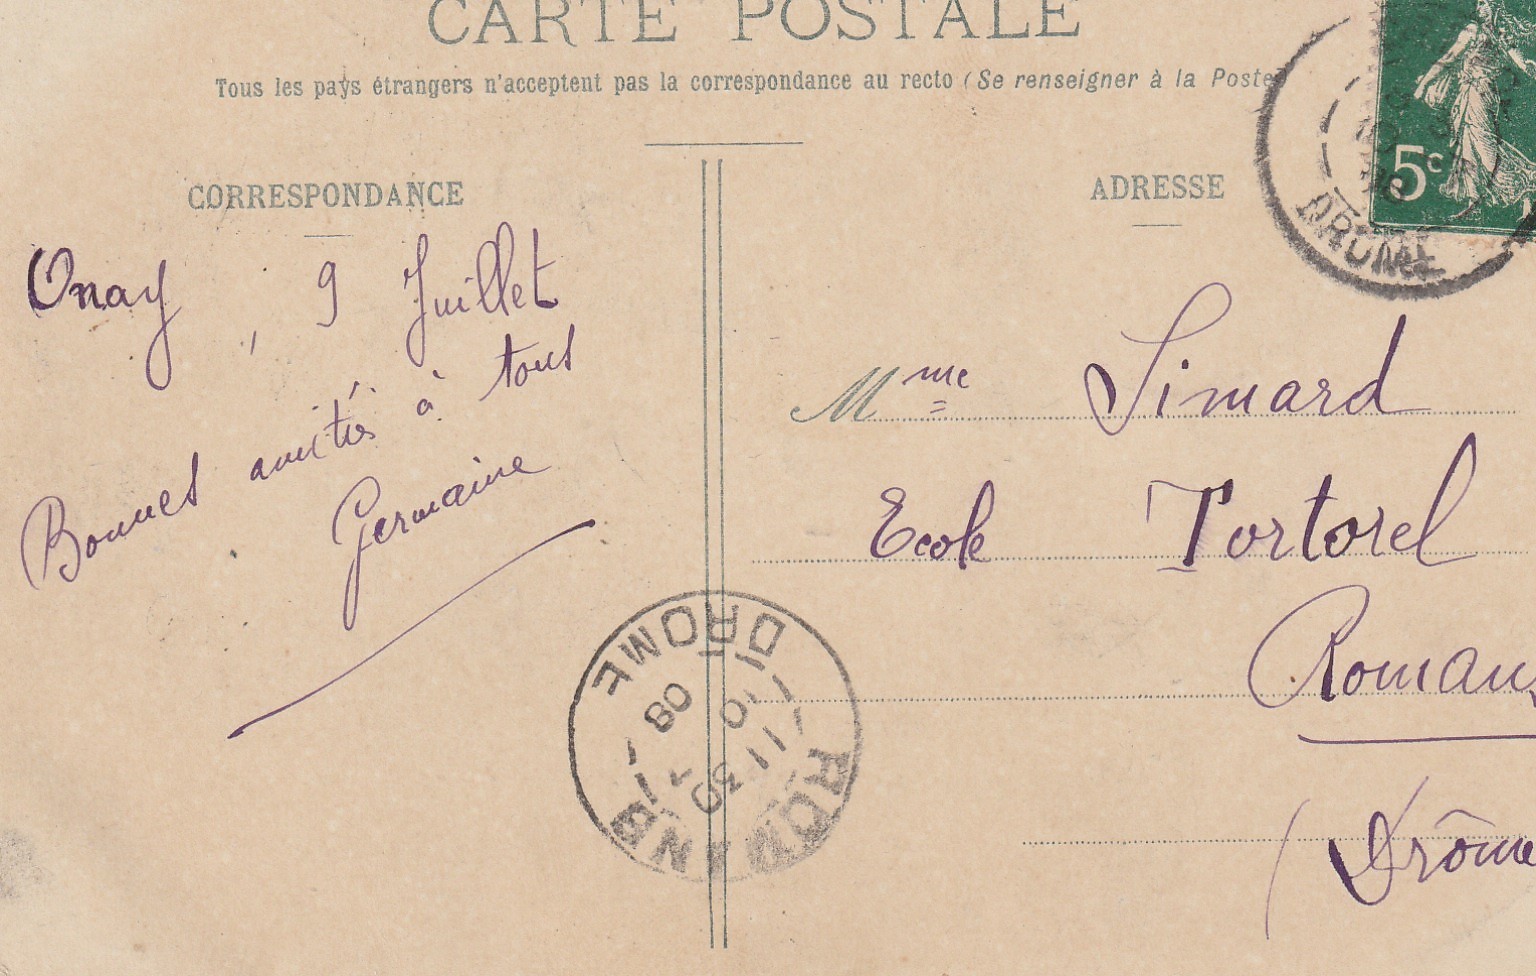 CARTE POSTALE
Tous les pays étrangers n'acceptent pas la correspondance au recto (Se renseigner à la Poste
CORRESPONDANCE
ADRESSE
5c
DROME
Onay, 9 Juillet
Bonnes amitiés à tous
Germaine
Mme Simard
Ecole Tortorel
Romans
(Drôme
DROME
11 30
10
7
08
ROMANS